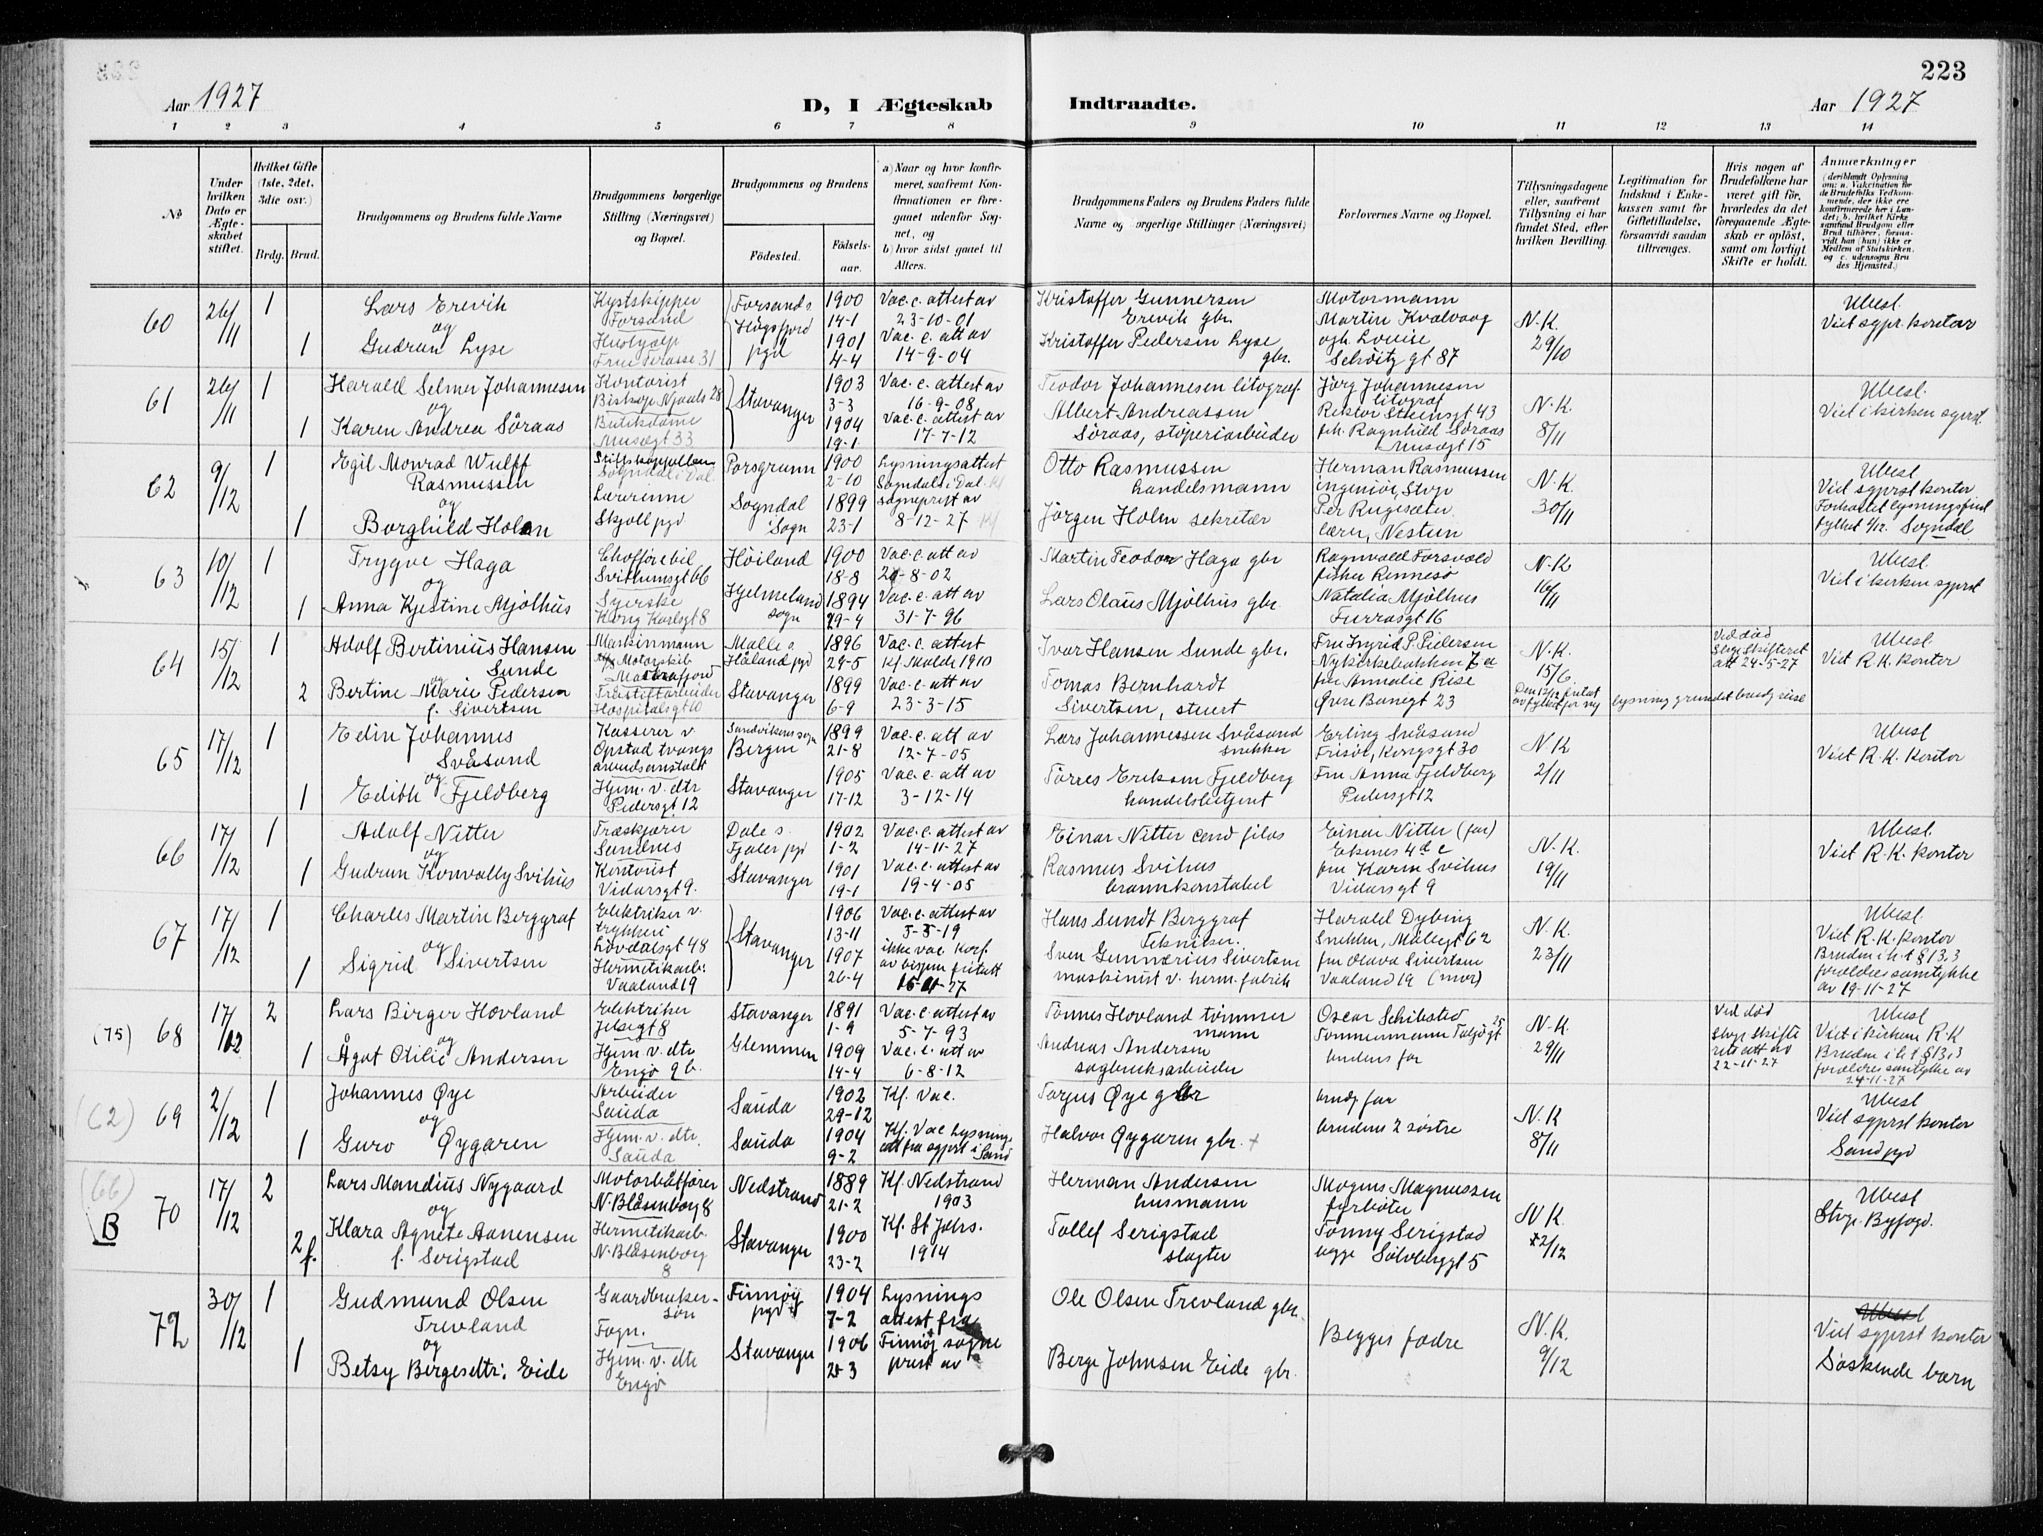 223
Aar 1927
D, I Ægteskab
Indtraadte.
Aar 1927
1 2 3 4 5 6 7 8 9 10 11 12 13 14
No
Under hvilken Dato er Ægteskabet stiftet.
Hvilket Gifte (1ste, 2det, 3die osv.)
Brdg. Brud.
Brudgommens og Brudens fulde Navne
Brudgommens borgerlige Stilling (Næringsvei) og Bopæl.
Brudgommens og Brudens
Fødested.
Fødselsaar.
a) Naar og hvor konfirmeret, saafremt Konfirmationen er foregaaet udenfor Sognet, og
b) hvor sidst gaaet til Alters.
Brudgommens Faders og Brudens Faders fulde Navne og borgerlige Stillinger (Næringsvei)
Forlovernes Navne og Bopæl.
Tillysningsdagene eller, saafremt Tillysning ei har fundet Sted, efter hvilken Bevilling.
Legitimation for Indskud i Enkekassen samt for Giftetilladelse, forsaavidt saadan tiltrænges.
Hvis nogen af Brudefolkene har været gift før, hvorledes da det foregaaende Ægteskab er opløst, samt om lovligt Skifte er holdt.
Anmærkninger
(deriblandt Oplysning om: a. Vaccination for de Brudefolks Vedkommende, der ikke ere konfirmerede her i Landet; b. hvilket Kirkesamfund Brudgom eller Brud tilhører, forsaavidt han (hun) ikke er Medlem af Statskirken, og c. udensogns Brudes Hjemsted.)
60 26/11 1 Lars Erevik
og
1 Gudrun Lyse
Kystskipper
Forsand
Forsands
Høgsfjord
pgd
1900
14-1
1901
4-4
Vac. c. attest av
23-10-01
Vac. c. att av
14-9-04
Kristoffer Gunnersen
Erevik gbr.
Kristoffer Pedersen Lyse
gbr.
Motormann
Martin Kvalvaag
ogh. Louise
gt 87
N.K.
29/10
Ubest.
Viet sgpr. kontor
61 26/11 1 Harald Selmer Johannesen
og
1 Karen Andrea Søraas
Kontorist
Biskop Njaals 28
Butikdame
Musægt 33
Stavanger
1903
3-3
1904
19-1
Vac. c. attest av
16-9-08
Vac. c. attest av
17-7-12
Teodor Johannesen litograf
Albert Andreassen
Søraas, støperiarbeider
Jørg Johannesen
litograf
Rektor Steensgt 43
frk. Ragnhild Søraas
Musægt 15
N.K.
8/11
Ubest.
Viet i kirken sgprst
62 9/12 1 Egil Monrad Wulff
Rasmussen
og
1 Borghild Holm
Stiftskapellan
Sogndal i Dal.
Lærerinne
Skjold pgd
Porsgrunn
Sogndal
i Sogn
1900
2-10
1899
23-1
Lysningsattest
Sogndal i Dal.
sogneprest av
8-12-27
Otto Rasmussen
handelsmann
Jørgen Holm sekretær
Herman Rasmussen
ingeniør, Stvgr
Per Rugesæter
lærer, Nestun
N.K.
30/11
Ubest
Viet sgprst kontor
Forkortet lysningsfrist
fylket 9/12. Sogndal
63 10/12 1 Trygve Haga
og
1 Anna Kjestine Mjølhus
Chofførebil
Svithunsgt 66
Syerske
Kong Karlsgt 8
Høiland
Hjelmeland
sogn
1900
18-8
1894
29-4
Vac. c. att av
21-8-02
Vac. c. att av
31-7-96
Martin Teodor Haga gbr
Lars Olaus Mjølhus gbr.
Ragnvald Forsvold
fisker Rennesø
Natalia Mjølhus
Furrasgt 16
N.K
16/11
Ubest.
Viet i kirken sgprst
64 15/12 1 Adolf Bertinius Hansen
Sunde
og
2 Bertine Marie Pedersen
f. Sivertsen
Maskinmann
Motorskib
Mastrafjord
Hospitalsgt 10
Molle s.
Håland pgd
Stavanger
1896
29-5
1899
6-9
Vac. c. attest
Kf. Molde 1910
Vac. c. att av
23-3-15
Ivar Hansen Sunde gbr.
Tomas Bernhardt
Sivertsen, stuert
Fru Ingrid P. Pedersen
Nykirkebakken 7 a
frn Annalie Rise
Øvre Banegt 23
N.K.
15/6
Den 12/12 fritat
av fylket for ny lysning grundet brudg. reise
Ved død
Stvgr Skifteret
att 24-5-27
Ubest
Viet R.K. kontor
65 17/12 1 Edin Johannes
Svåsand
og
1 Edith Fjeldberg
Kasserer v
Opstad tvangs
arbeidsanstalt
Hjem. v. dtr
Pedersgt 12
Sandvikens sogn
Bergen
Stavanger
1899
21-8
1905
17-12
Vac. c. att av
12-7-05
Vac. c. att av
3-12-14
Lars Johannessen Svåsand
snekker
Torres Eriksen Fjeldberg
handelsbetjent
Erling Svåsand
Frisør, Kongsgt 30
Fru Anna Fjeldberg
Pedersgt 12
N.K
2/11
Ubest
Viet R.K. kontor
66 17/12 1 Adolf Nitter
og
1 Gudrun Konvally Svihus
Træskjærer
Sandnes
Kontorist
Vidarsgt 9.
Dale s.
Fjaler pgd
Stavanger
1902
1-2
1901
19-1
Vac. c. attest av
14-11-27
Vac. c. attest av
19-4-05
Einar Nitter cand filos
Rasmus Svihus
brannkonstabel
Einar Nitter (far)
Eknes 4de
fru Karin Svihus
Vidarsgt 9
N.K.
19/11
Ubest.
Viet R.K. kontor
67 17/12 1 Charles Martin Berggraf
og
1 Sigrid Sivertsen
Elektriker v.
trykkeri
Løvdalsgt 48
Hermetikarb.
Vaaland 19
Stavanger
1906
13-11
1907
26-4
Vac. c. attest av
5-5-19
ikke vac. Konf.
av bispen fritatt
16-11-27
Hans Sundt Berggraf
Tekniker.
Sven Gunnarius Sivertsen
maskinist v. herm. fabrik
Harald Dybing
Snekker, Møllegt 62
fru Olava Sivertsen
Vaaland 19 (mor)
N.K.
23/11
Ubest.
Viet R.K. kontor
Bruden i h.t § 13,3
foreldres samtykke
av 19-11-27
(75) 68 17/12 2 Lars Birger Hovland
og
1 Ågot Otilie Andersen
Elektriker
Jelsegt 8
Hjem. v. dtr
Engø 9 b.
Stavanger
Glemmen
1891
1-9
1909
14-4
Vac. c. attest av
5-7-93
Vac. c. att av
6-8-12
Tønnes Hovland tømmer
mann
Andreas Andersen
sagbruksarbeider
Oscar Schibsted
Tømmermann Talgøgt 25
brudens far
N.K.
29/11
Ved død
Stvgr skifte
rets att av
22-11-27
Ubest
Viet i kirken R.K
Bruden i h.t § 13,3
foreldres samtykke av
24-11-27
(62) 69 2/12 1 Johannes Øye
og
1 Guro Øygaren
Arbeider
Sauda
Hjem. v. dtr.
Sauda
Sauda
Sauda
1902
29-12
1904
9-2
Kf. Vac.
Kf. Vac Lysnings
att fra sgprst i Sand
Torjus Øye gbr
Halvor Øygaren gbr. +
brudg. far
brudens 2 søstre
N.K
8/11
Ubest
Viet sgprst kontor
Sand pgd
(66)
B 70 17/12 2 Lars Mandius Nygaard
og
2 f. Klara Agnete Aanensen
f. Serigstad
Motorbåtfører
N. Blåsenborg 8
Hermetikarb.
N. Blåsenborg
8
Nedstrand
Stavanger
1889
21-2
1900
23-2
Kf. Nedstrand
1903
Kf. St Johs.
1914
Herman Andersen
husmann
Tollef Serigstad
slagter
Mogens Magnussen
fyrbøter
Tønny Serigstad
Sølvberggt 5
N.K.
2/12
Ubest
Stvgr. Byfogd.
72 30/12 1 Gudmund Olsen
Trevland
og
1 Betsy Bergesdtr. Eide
Gaardbruker-
søn
Fogn.
Hjem. v. dtr
Engø
Finnøy
pgd
Stavanger
1904
7-2
1906
2-3
Lysnings
attest fra
Finnøy sogne
prest av
Ole Olsen Trevland gbr.
Berge Johnsen Eide gbr.
Begges fædre
N.K.
9/12
Ubest
Viet sgprst kontor
Søskende barn